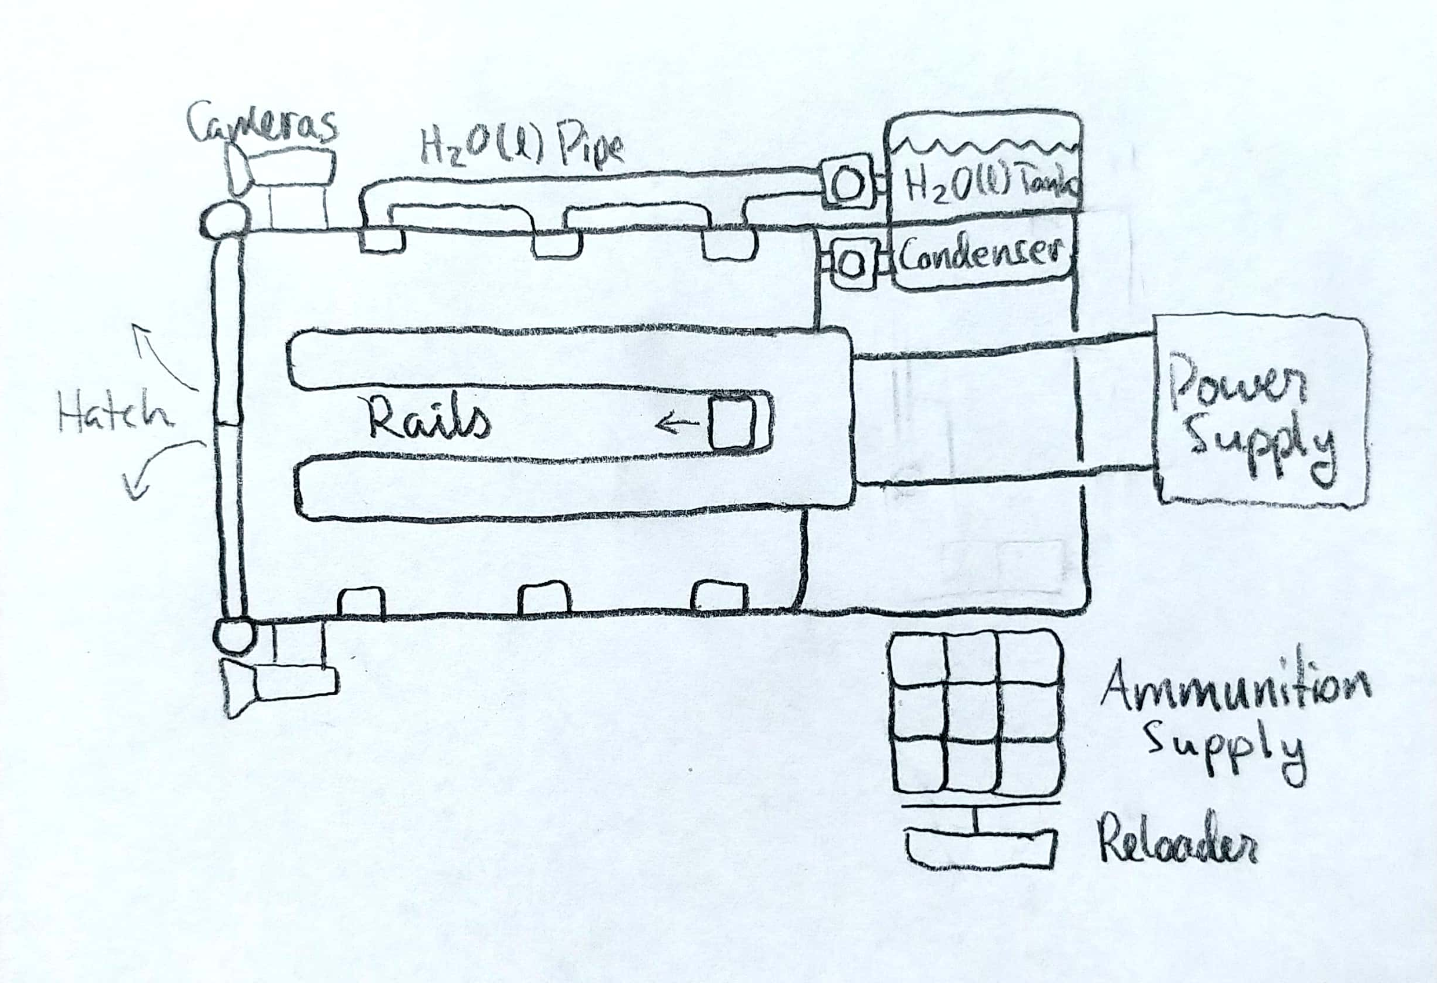 Cameras
H₂O(l) Pipe
H₂O(l) Tank
Condenser
Hatch
Rails
Power
Supply
Ammunition
Supply
Reloader